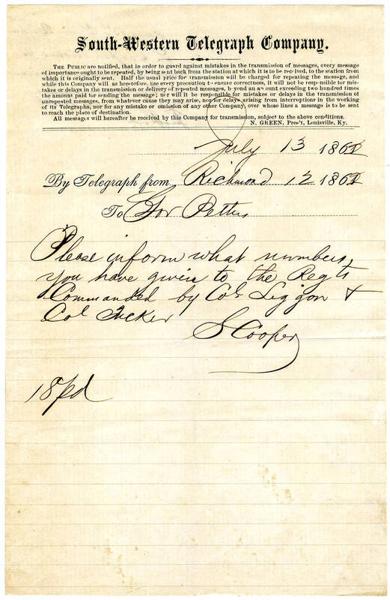 South-Western Telegraph Company.
THE PUBLIC are notified, that in order to guard against mistakes in the transmission of messages, every message
of importance ought to be repeated, by being sent back from the station at which it is to be received, to the station from
which it is originally sent. Half the usual price for transmission will be charged for repeating the message, and
while this Company will as heretofore, use every precaution to ensure correctness, it will not be responsible for mis-
takes or delays in the transmission or delivery of repeated messages, beyond an amount exceeding two hundred times
the amount paid for sending the message; nor will it be responsible for mistakes or delays in the transmission of
unrepeated messages, from whatever cause they may arise, nor for delays arising from interruptions in the working
of its Telegraphs, nor for any mistake or omission of any other Company, over whose lines a message is to be sent
to reach the place of destination.
All messages will hereafter be received by this Company for transmission, subject to the above conditions.
N. GREEN, Pres't, Louisville, Ky.
July 13 186
By Telegraph from Richmond 12 186
To Gov Pettus
Please inform what numbers
you have given to the Regts
Commanded by Col Liggon &
Col Tucker
S Cooper
18 pd